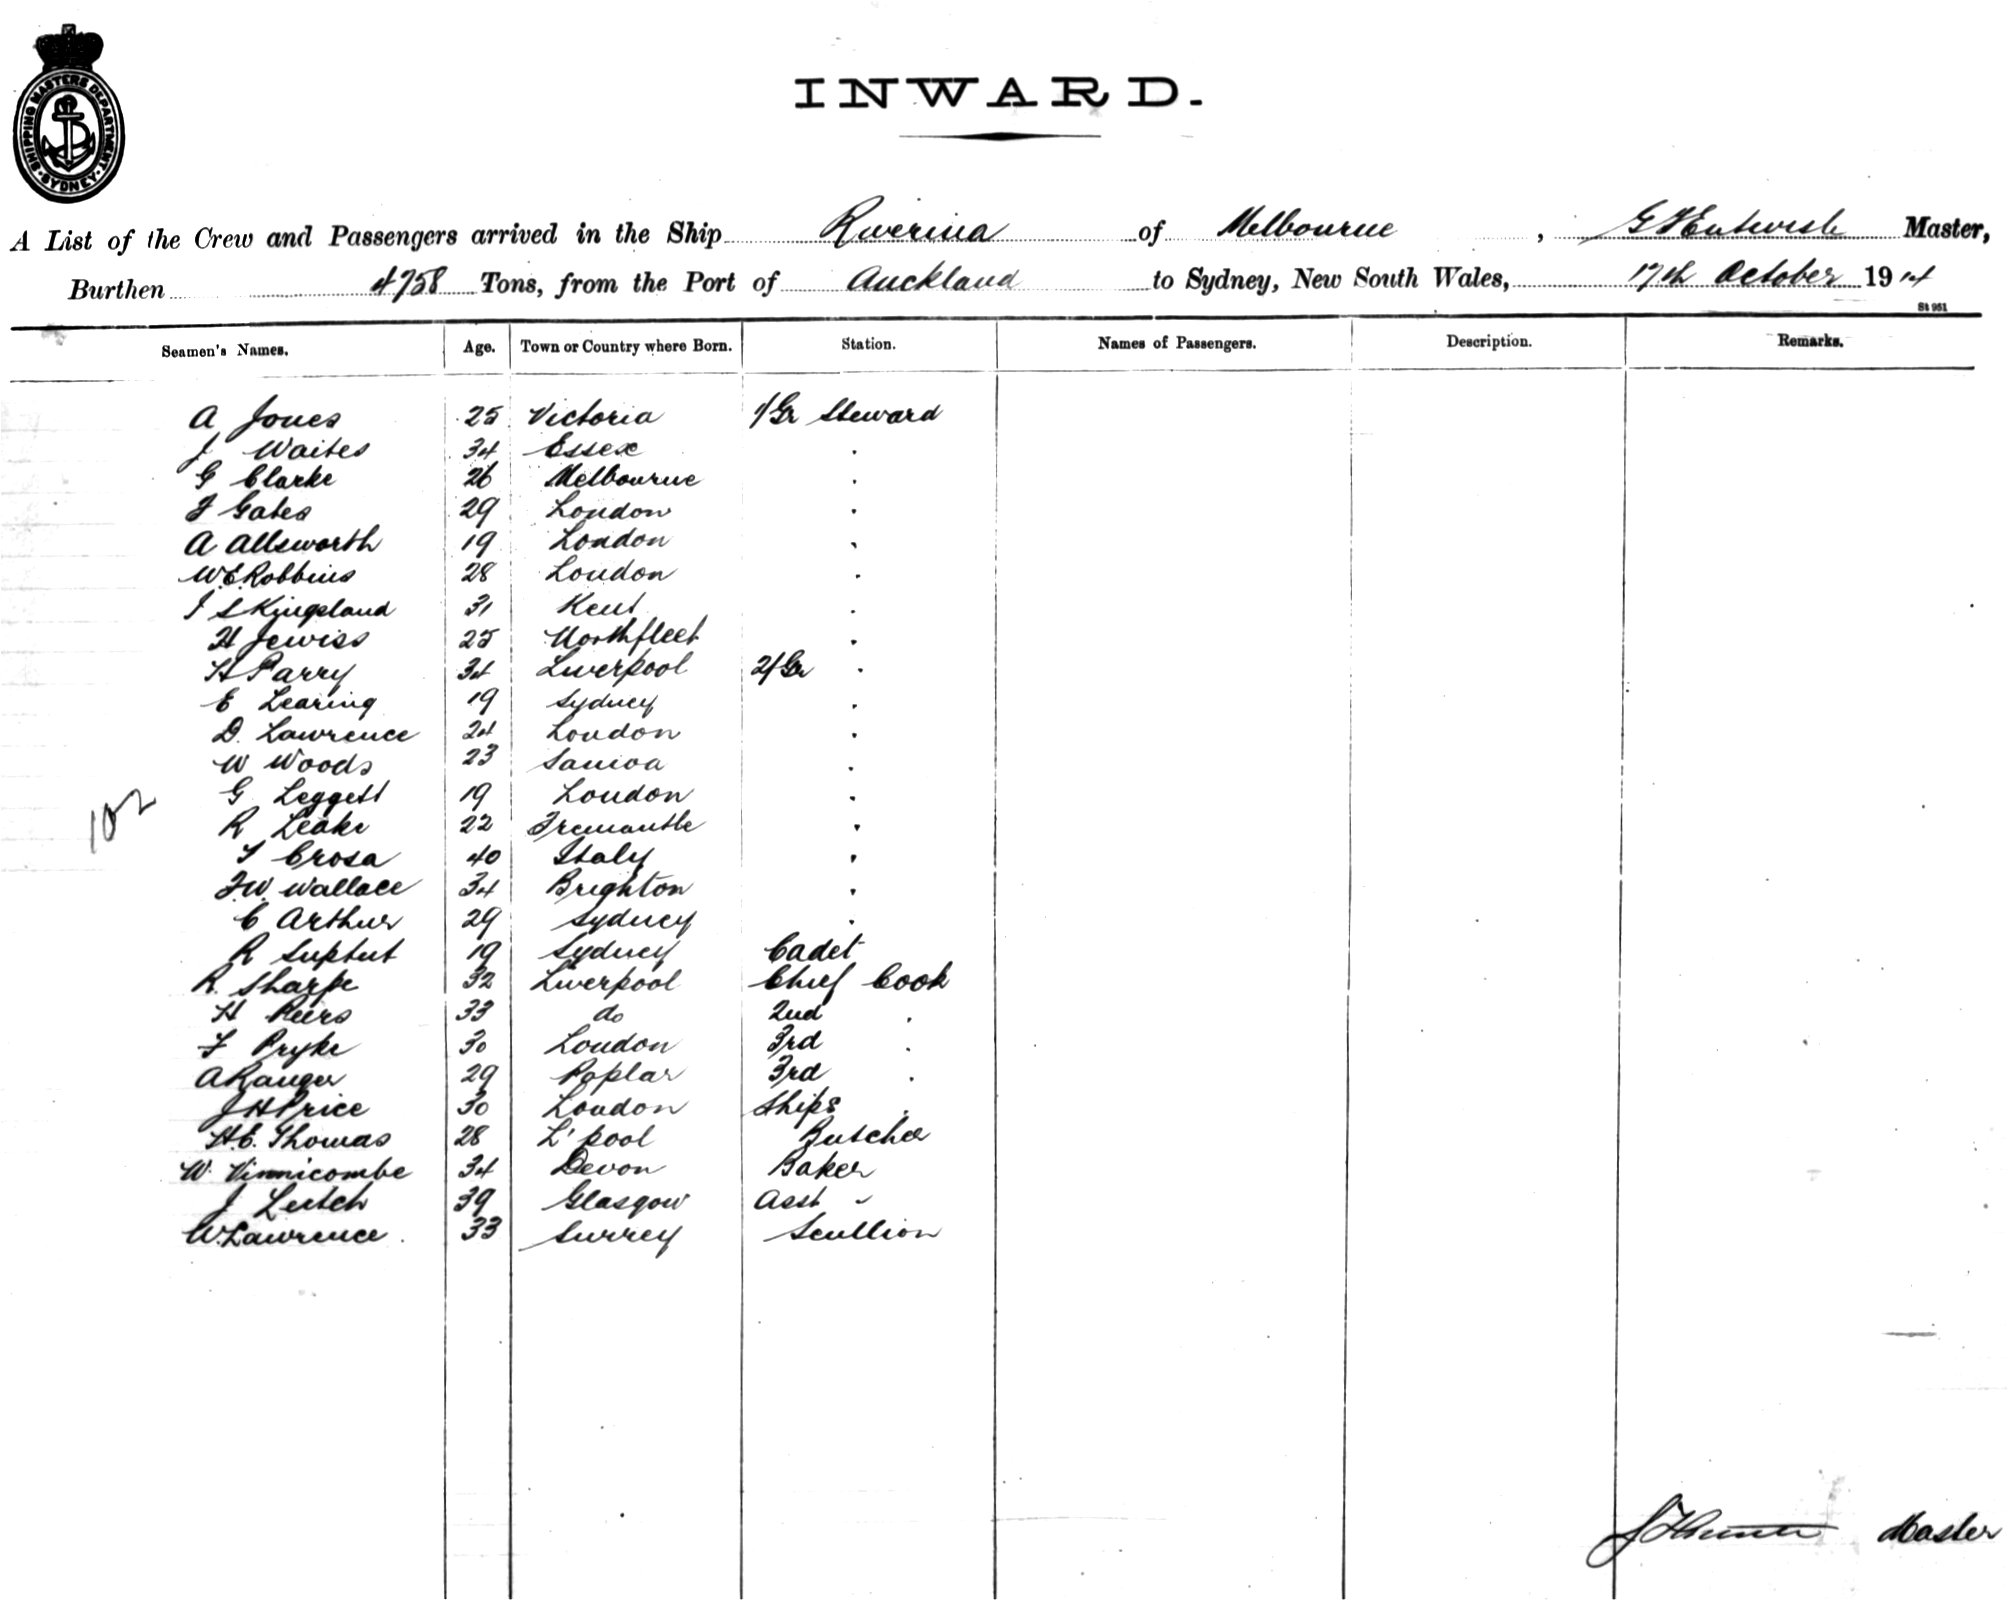 SHIPPING MASTERS DEPARTMENT
SYDNEY
INWARD.
A List of the Crew and Passengers arrived in the Ship Riverina of Melbourne, Master,
Burthen 4758 Tons, from the Port of Auckland to Sydney, New South Wales, 17th October 1914
St 951
Seamen's Names. Age. Town or Country where Born. Station. Names of Passengers. Description. Remarks.
A Jones 25 Victoria 1/Gr Steward
J Waites 34 Essex "
G Clarke 26 Melbourne "
F Gates 29 London "
A Allsworth 19 London "
W.E. Robbins 28 London "
J S Kingsland 31 Kent "
H Jewiss 25 Northfleet "
H Parry 34 Liverpool 2/Gr "
E Learing 19 Sydney "
D. Lawrence 24 London "
W Woods 23 Samoa "
G Leggett 19 London "
R Leake 22 Fremantle "
102
Crosa 40 Italy "
F.W. Wallace 34 Brighton "
C Arthur 29 Sydney "
R 19 Sydney Cadet
R. Sharpe 32 Liverpool Chief Cook
H Peers 33 do 2nd "
F Pryke 30 London 3rd "
A Ranger 29 Poplar 3rd "
J H Price 30 London Ships "
H.E. Thomas 28 L'pool Butcher
W. Vinnicombe 34 Devon Baker
J Leitch 39 Glasgow Asst "
W. Lawrence 33 Surrey Scullion
Master